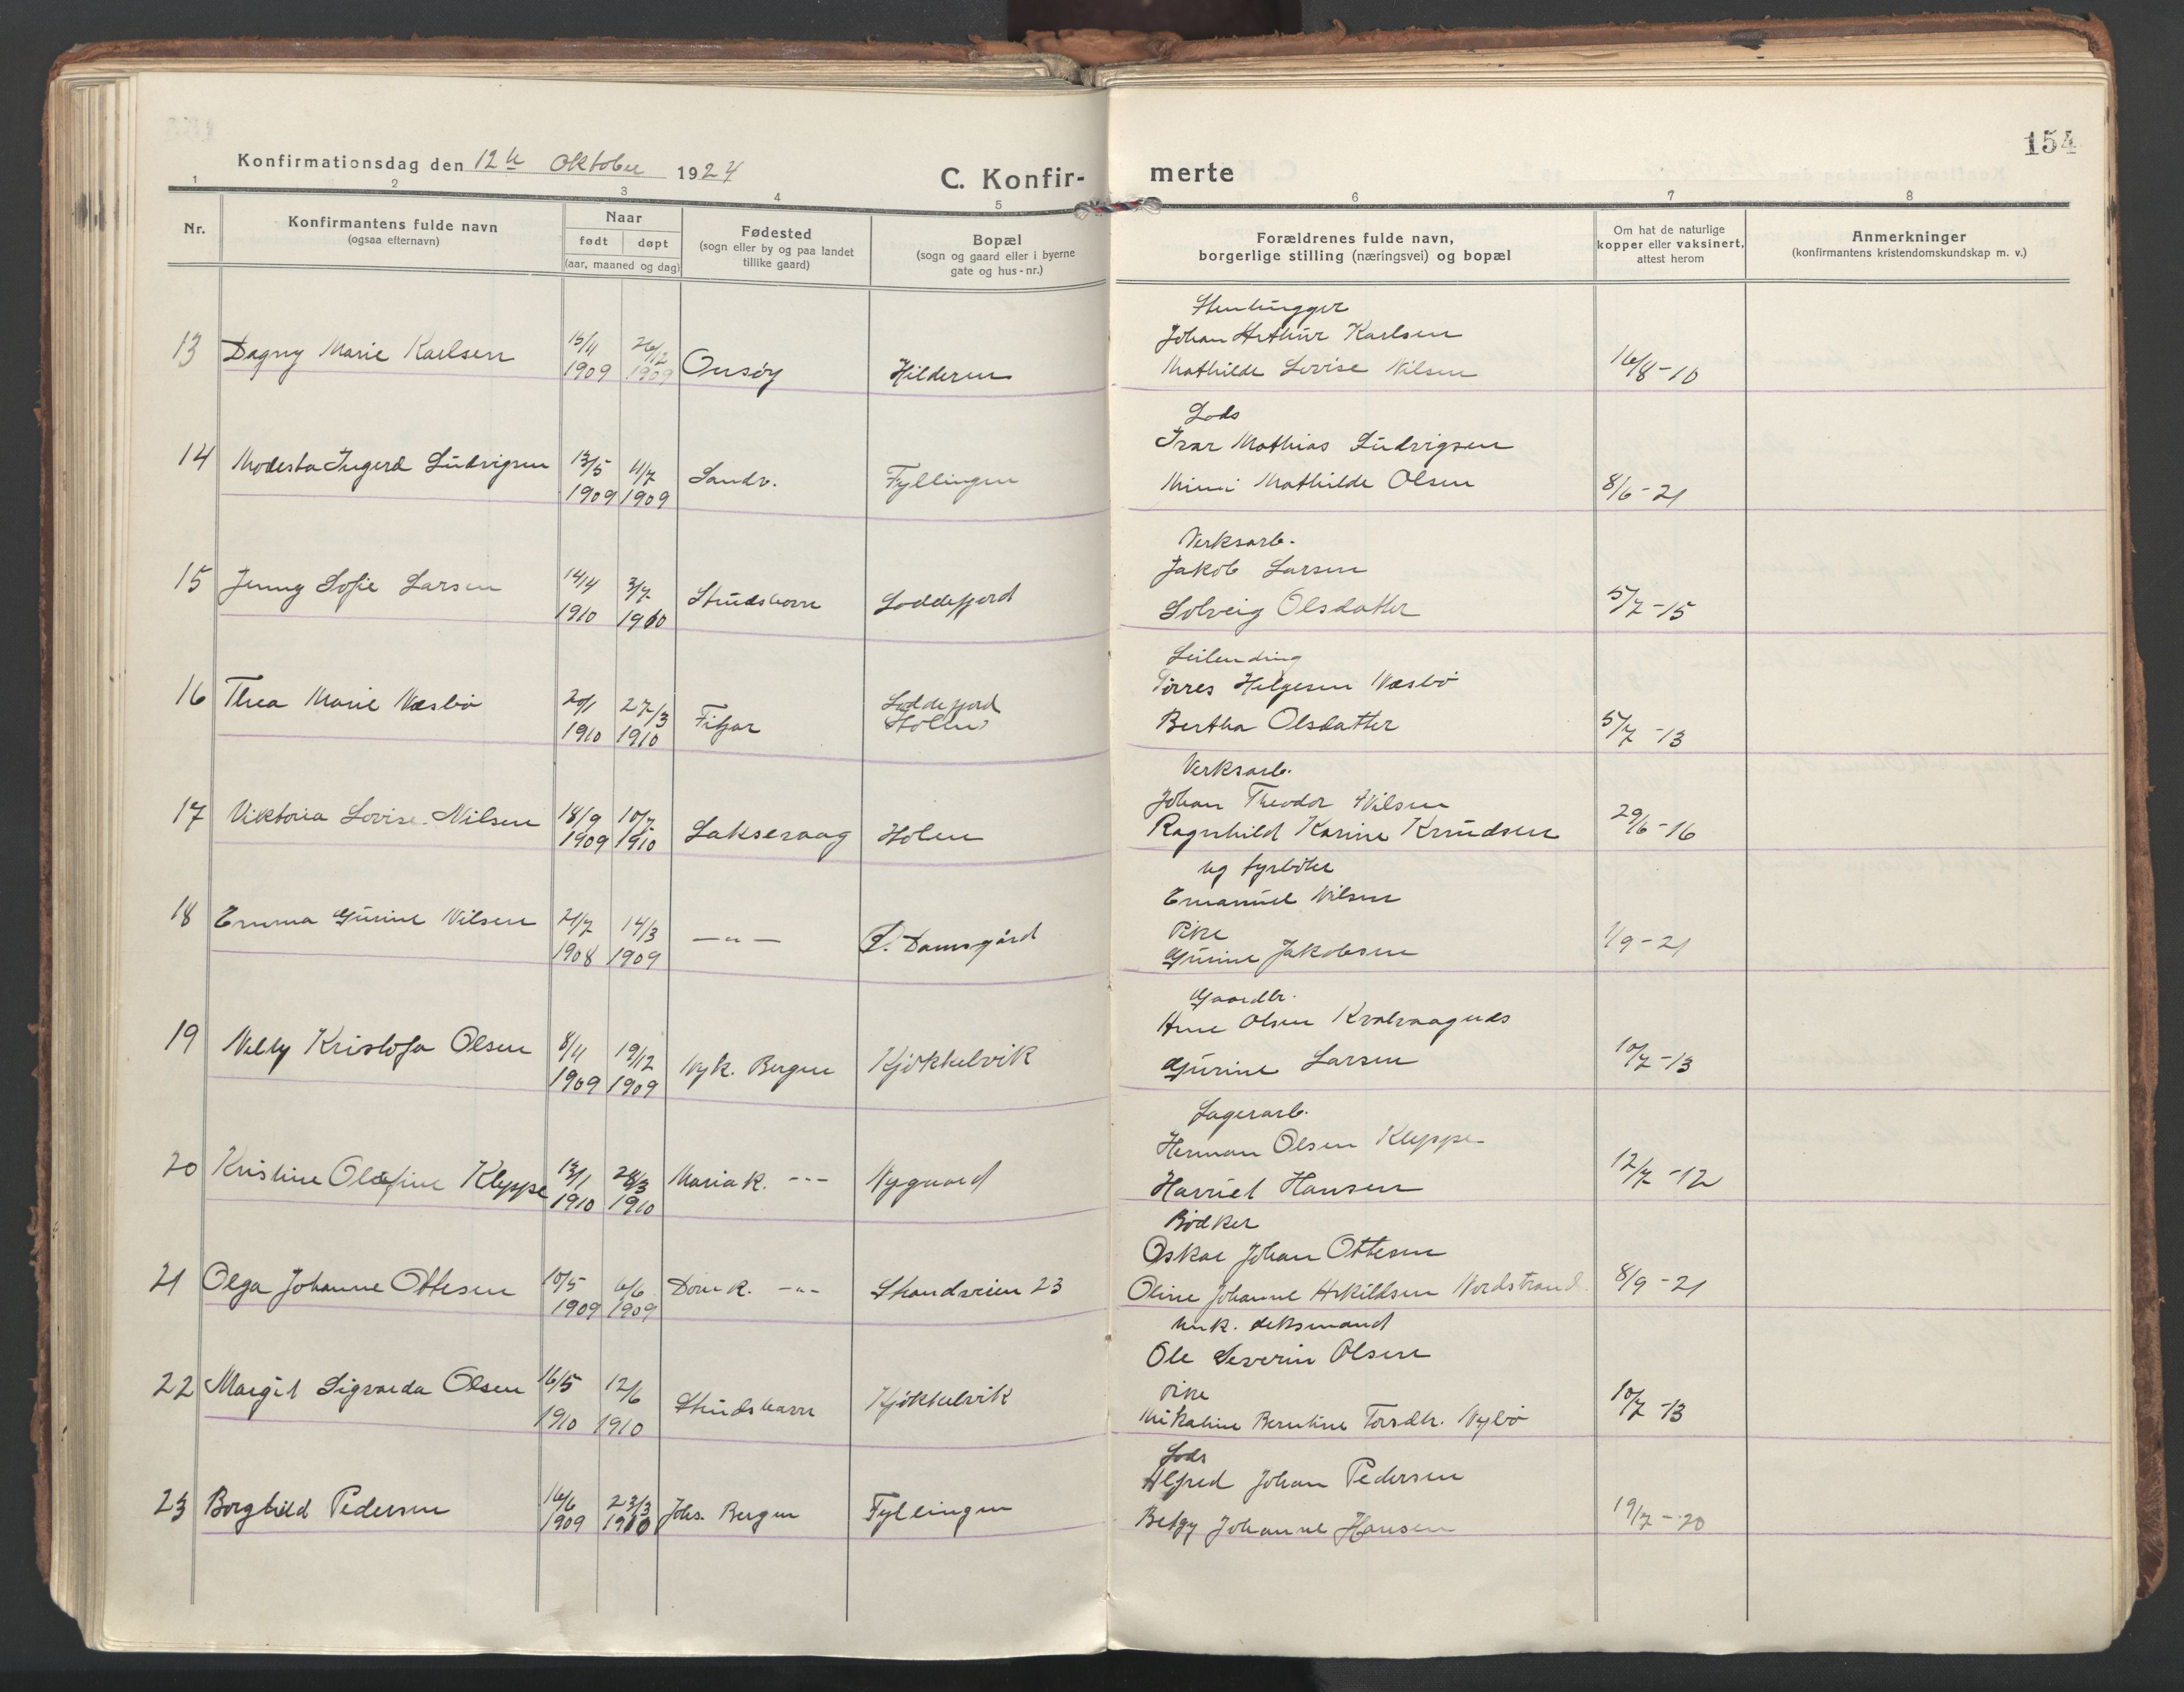 154
Konfirmationsdag den 12te Oktober 1924
C. Konfir- merte
1 2 3 4 5 6 7 8
Nr.
Konfirmantens fulde navn
(ogsaa efternavn)
Naar
født døpt
(aar, maaned og dag)
Fødested
(sogn eller by og paa landet
tillike gaard)
Bopæl
(sogn og gaard eller i byerne
gate og hus-nr.)
Forældrenes fulde navn,
borgerlige stilling (næringsvei) og bopæl
Om hat de naturlige
kopper eller vaksinert,
attest herom
Anmerkninger
(konfirmantens kristendomskundskap m. v.)
Stenhugger
Johan Arthur Karlsen
13 Dagny Marie Karlsen 15/11 1909 26/12 1909 Onsöy Hilderen
Mathilde Lovise Nilsen 16/8-10
Lods
Ivar Mathias Ludvigsen
14 Modesta Ingerd Ludvigsen 13/5 1909 11/7 1909 Sandv. Fyllingen
Mimi Mathilde Olsen 8/6-21
Verksarb.
Jakob Larsen
15 Jenny Sofie Larsen 14/4 1910 3/7 1910 Strudshavn Loddefjord
Solveig Olsdatter 5/7-15
Leilending
Tørres Helgesen Næsbö
16 Thea Marie Næsbö 20/1 1910 27/3 1910 Fitjar Loddefjord
Bertha Olsdatter 5/7-13
Verksarb.
Johan Theodor Nilsen
17 Viktoria Lovise Nilsen 18/9 1909 10/7 1910 Laksevaag Holen
Ragnhild Karine Knudsen 29/6-16
ug fyrböter
Emanuel Nilsen
18 Emma Gurine Nilsen 21/7 1908 14/3 1909 — " — D. Damsgård
Pike
Gurine Jakobsen 1/9-21
Gaardbr.
Arne Olsen Kvalvaagnes
19 Nelly Kristofa Olsen 8/11 1909 19/12 1909 Nyk. Bergen Kjökkelvik
Gurine Larsen 10/7-13
Lagerarb.
Herman Olsen Kleppe
20 Kristine Olafine Kleppe 13/1 1910 28/3 1910 Mariak. -"- Nygaard
Harriet Hansen 12/7-12
Bödker
Oskar Johan Ottesen
21 Olga Johanne Ottesen 10/5 1909 6/6 1909 Domk. -"- Strandveien 23
Oline Johanne Askildsen Nordstrand 8/9-21
unk. deksmand
Ole Severin Olsen
22 Margit Sigvarda Olsen 16/5 1910 12/6 1910 Strudshavn Kjökkelvik
Pike
Mikaline Berntine Torsdtr. Nybö 10/7-13
Lods
Alfred Johan Pedersen
23 Borghild Pedersen 16/6 1909 23/3 1910 Johs. Bergen Fyllingen
Betzy Johanne Hansen 19/7-20